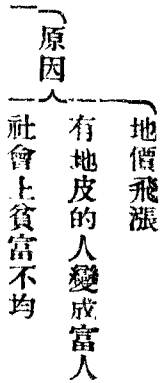 原因
地價飛漲
有地皮的人變成富人
社會上貧富不均